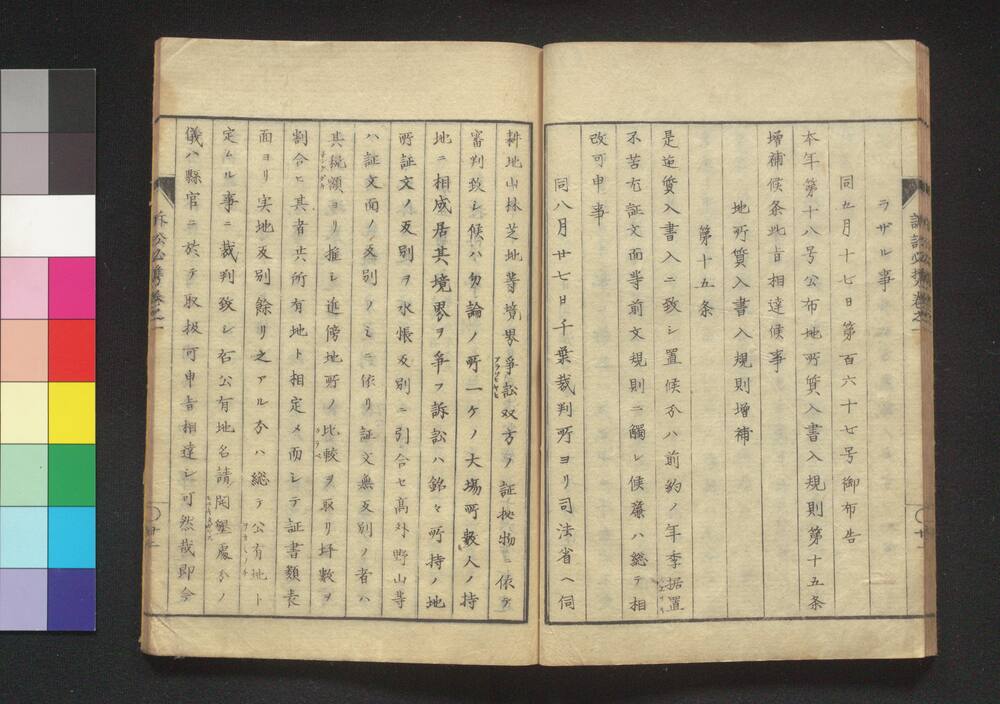 ラザル事
同五月十七日第百六十七号御布告
本年第十八号公布地所質入書入規則第十五条
増補候条此旨相達候事
地所質入書入規則増補
第十五条
是迄質入書入ニ致シ置候分ハ前約ノ年季据置
不苦尤証文面等前文規則ニ觸レ候廉ハ総テ相
改可申事
同八月廿七日千葉裁判所ヨリ司法省ヘ伺
耕地山林芝地等境界爭訟双方ノ証拠物ニ依テ
審判致シ候ハ勿論ノ所一ケノ大場所数人ノ持
地ニ相成居其境界ヲ爭フ訴訟ハ銘々所持ノ地
所証文ノ反別ヲ水帳反別ニ引合セ髙外野山等
ハ証文面ノ反別ノミニ依リ証文無反別ノ者ハ
其税額ヨリ推シ進傍地所ノ比較ヲ取リ坪数ヲ
割合ヒ其者共所有地ト相定メ而シテ証書類表
面ヨリ実地反別餘リ之アル分ハ総テ公有地ト
定ムル事ニ裁判致シ右公有地名請開墾處分ノ
儀ハ縣官ニ於テ取扱可申旨相達シ可然哉即今